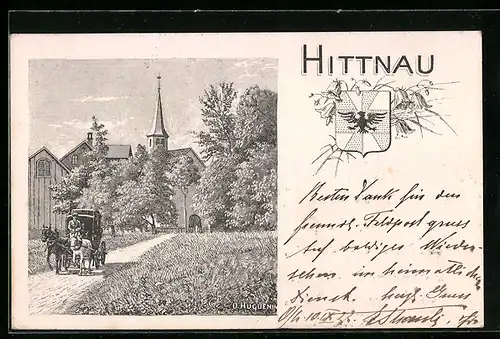 HITTNAU
O. HUGUENIN
Besten Dank für den
freundl. Feldpost gruss
Auf baldiges Wieder-
sehen im heimatlichen
Dienst. herzl. Gruss